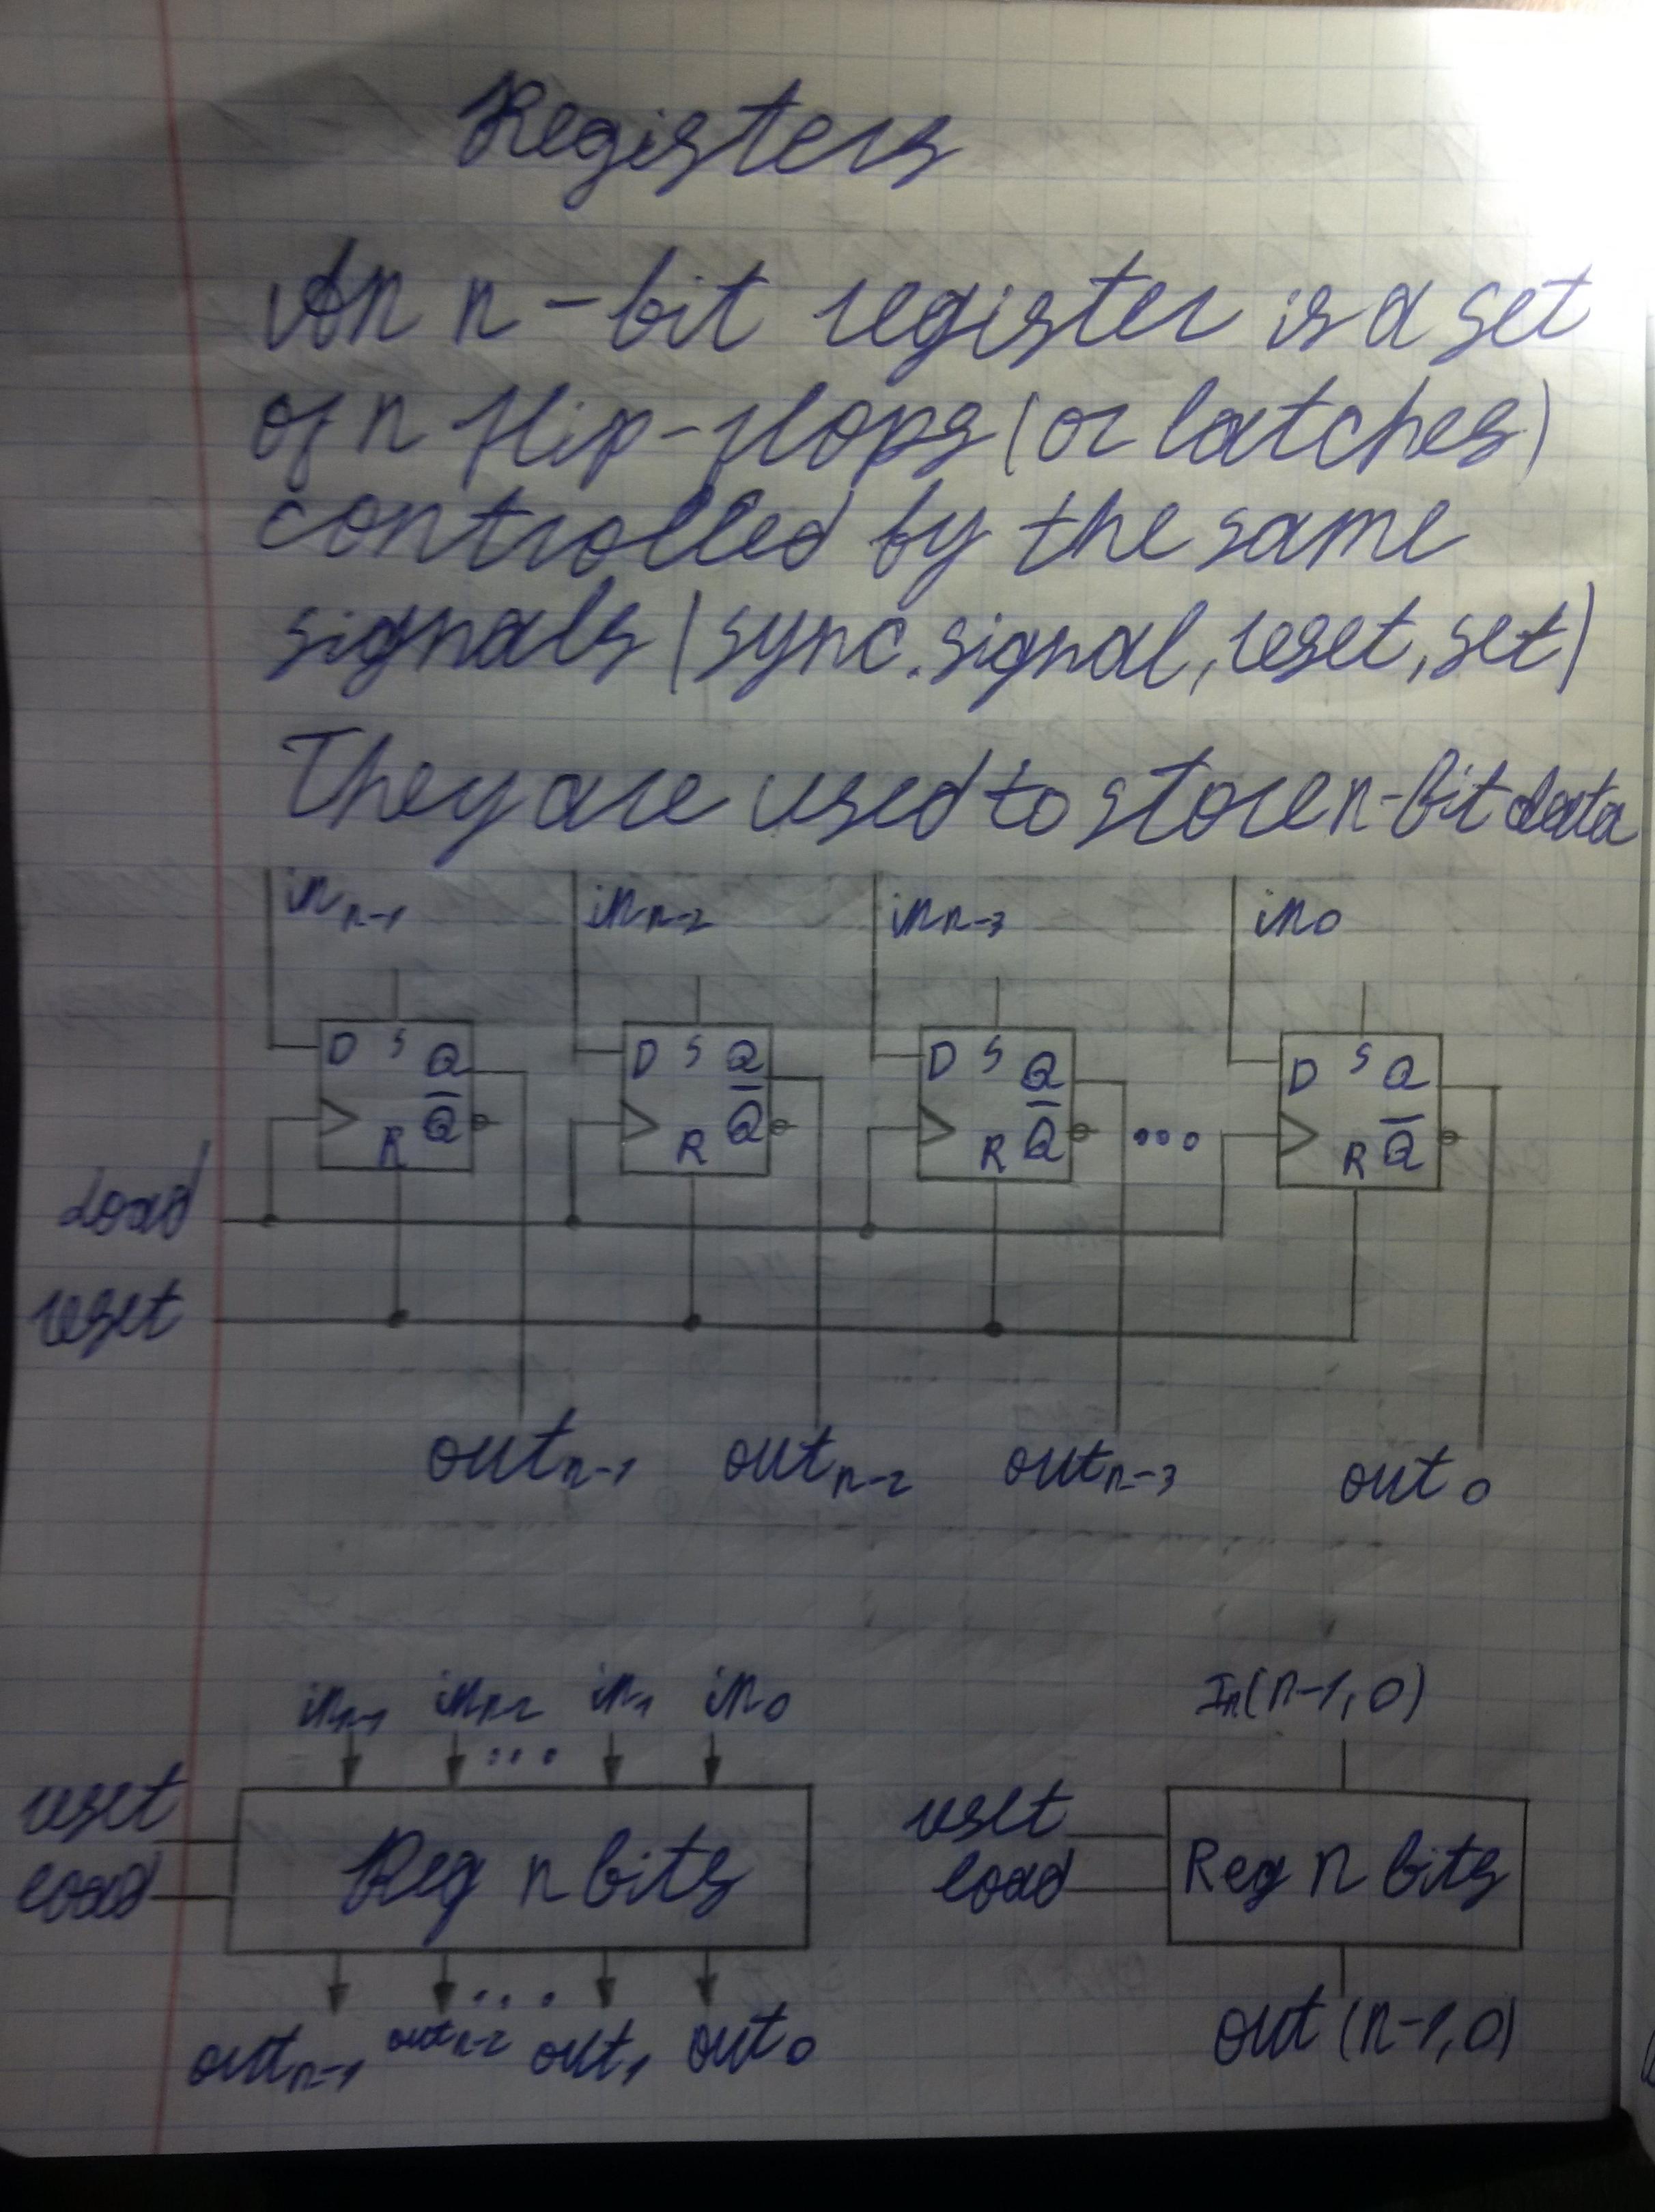 Registers
An n-bit register is a set
of n flip-flops (or latches)
controlled by the same
signals (sync. signal, reset, set)
They are used to store n-bit data
in n-1 in n-2 in n-3 in 0
D S Q D S Q D S Q D S Q
R Q̅ R Q̅ R Q̅ ... R Q̅
Load
reset
out n-1 out n-2 out n-3 out 0
in n-1 in n-2 ... in 1 in 0 In(n-1,0)
reset reset
load Reg n bits load Reg n bits
...
out n-1 out n-2 out 1 out 0 out (n-1,0)